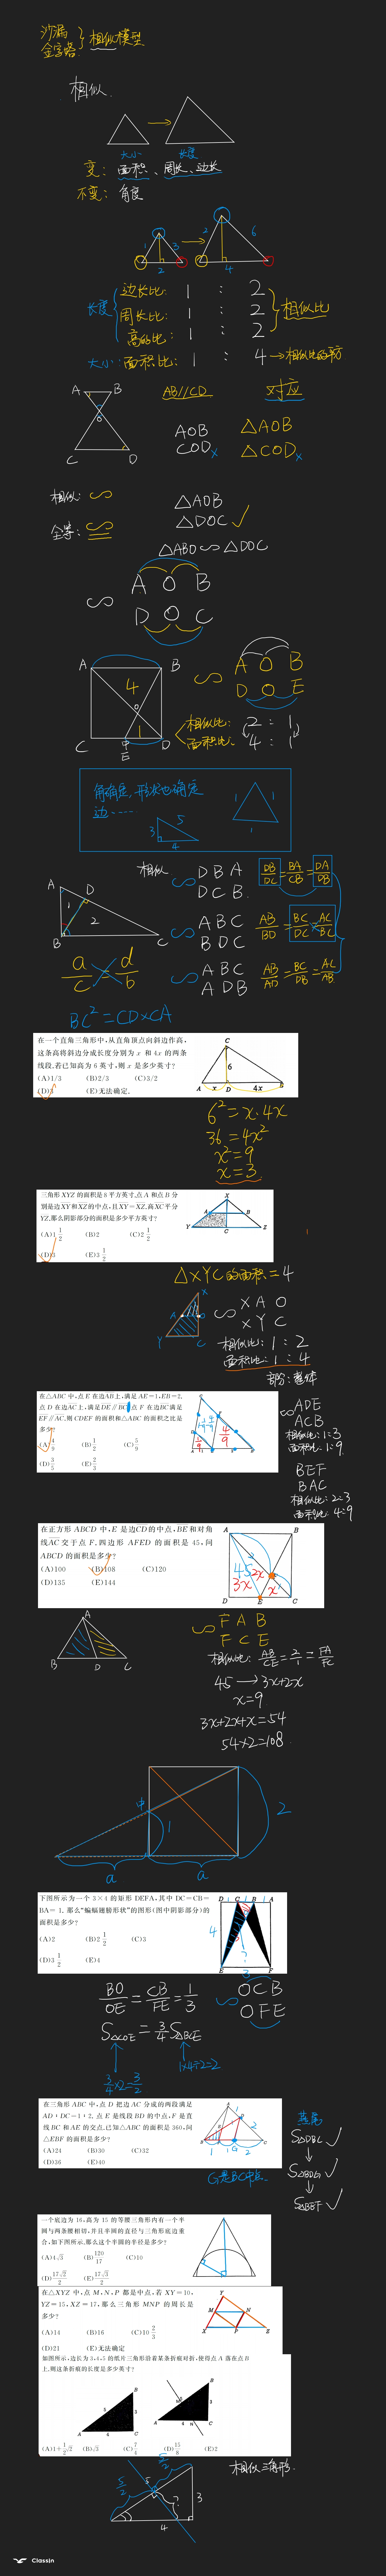 沙漏
金字塔
相似模型
相似.
大小 长度
变: 面积、周长、边长
不变: 角度
1 3 2
2 6 4
长度
边长比: 1 : 2
周长比: 1 : 2
高的比: 1 : 2
相似比
大小: 面积比: 1 : 4 → 相似比的平方
A B
O
C D
AB//CD
对应
AOB
COD x
△AOB
△COD x
相似: ∽
全等: ≌
△AOB
△DOC ✓
△ABO ∽ △DOC
∽
A O B
D O C
A B
4
O
1
C 中 D
E
∽
A O B
D O E
相似比: 2 : 1
面积比: 4 : 1
角确定, 形状也确定
边……
3 5 4
1 1 1
A D
1 2
B C
相似 ∽ DBA
DCB
DB/DC = BA/CB = DA/DB
∽ ABC
BDC
AB/BD = BC/DC = AC/BC
∽ ABC
ADB
AB/AD = BC/DB = AC/AB
a/c = d/b
BC² = CD×CA
在一个直角三角形中,从直角顶点向斜边作高,
这条高将斜边分成长度分别为 x 和 4x 的两条
线段.若已知高为 6 英寸,则 x 是多少英寸?
(A)1/3 (B)2/3 (C)3/2
(D)3 (E)无法确定.
C
6
A x D 4x B
6² = x·4x
36 = 4x²
x² = 9
x = 3
三角形 XYZ 的面积是 8 平方英寸.点 A 和点 B 分
别是边XY和XZ的中点,且XY=XZ,高XC平分
YZ,那么阴影部分的面积是多少平方英寸?
(A)1 1/2 (B)2 (C)2 1/2
(D)3 (E)3 1/2
X
A B
Y C Z
△XYC的面积=4
X
A O
Y C
∽ XAO
XYC
相似比: 1:2
面积比: 1:4
部分:整体
在△ABC 中,点 E 在边AB上,满足 AE=1,EB=2.
点 F 在边BC满足
EF∥AC,则 CDEF 的面积和△ABC 的面积之比是
多少?
(A)4/9 (B)1/2 (C)5/9
(D)3/5 (E)2/3
∽ ADE
ACB
相似比: 1:3
面积比: 1:9
BEF
BAC
相似比: 2:3
面积比: 4:9
在正方形 ABCD 中,E 是边CD的中点,BE和对角
线AC交于点 F,四边形 AFED 的面积是 45,问
ABCD 的面积是多少?
(A)100 (B)108 (C)120
(D)135 (E)144
A B
45 2x
3x F x
D E C
A
B D C
∽ FAB
FCE
相似比: AB/CE = 2/1 = FA/FC
45 → 3x+2x
x=9
3x+2x+x=54
54×2=108
中
1 2
a a
下图所示为一个 3×4 的矩形 DEFA,其中 DC=CB=
BA= 1. 那么“蝙蝠翅膀形状”的图形(图中阴影部分)的
面积是多少?
(A)2 (B)2 1/2 (C)3
(D)3 1/2 (E)4
D 1 C 1 B 1 A
4
?
E 3 F
BO/OE = CB/FE = 1/3
∽ OCB
OFE
S△COE = 3/4 S△BCE
3/4×2=3/2
1×4÷2=2
在三角形 ABC 中,点 D 把边 AC 分成的两段满足
AD : DC=1 : 2, 点 E 是线段 BD 的中点,F 是直
线 BC 和 AE 的交点,已知△ABC 的面积是 360,问
△EBF 的面积是多少?
(A)24 (B)30 (C)32
(D)36 (E)40
G是BC中点.
燕尾
S△DBC ✓
S△BDG ✓
S△BEF ✓
一个底边为 16,高为 15 的等腰三角形内有一个半
圆与两条腰相切,并且半圆的直径与三角形底边重
合,如下图所示,那么这个半圆的半径是多少?
(A)4√3 (B)120/17 (C)10
(D)17√2/2 (E)17√3/2
在△XYZ 中,点 M、N、P 都是中点,若 XY=10,
YZ=15,XZ=17,那么三角形 MNP 的周长是
多少?
(A)14 (B)16 (C)10 2/3
(D)21 (E)无法确定
Y
M N
X P Z
如图所示,边长为 3,4,5 的纸片三角形沿着某条折痕对折,使得点 A 落在点 B
上,则这条折痕的长度是多少英寸?
B
5 3
A 4 C
B
3
A 4 C
(A)1+1/2√2 (B)√3 (C)7/4 (D)15/8 (E)2
相似三角形.
5/2 5/2
5
?
3
4
ClassIn